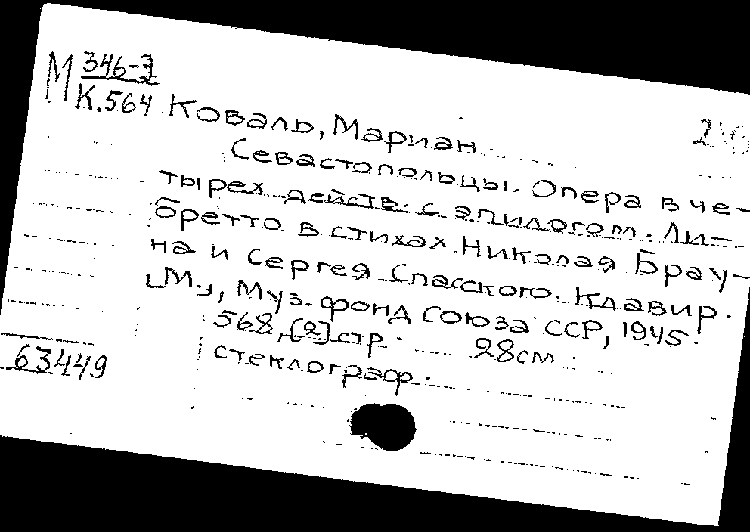 М 346-3
К.564
Коваль, Мариан
Севастопольцы. Опера в че-
тырех действ. с эпилогом. Ли-
бретто в стихах Николая Брау-
на и Сергея Спасского. Клавир.
М., Муз. фонд Союза ССР, 1945.
568, [2] стр. 28см
стеклограф.
63449